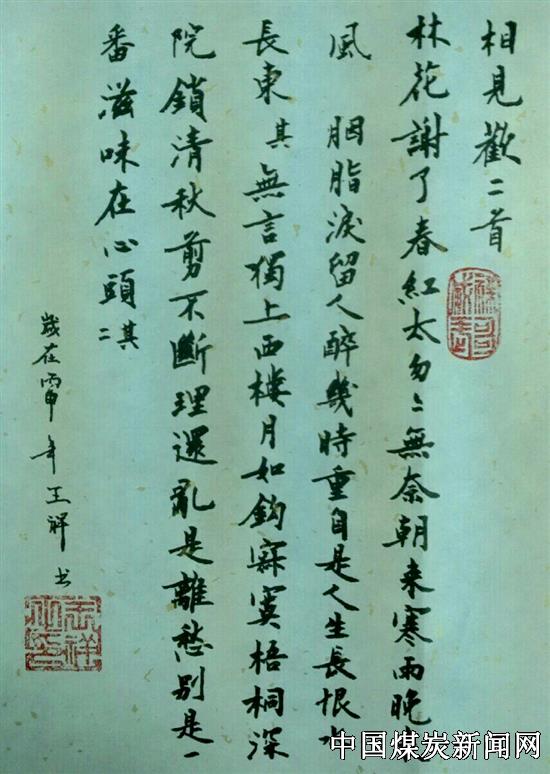 相見歡二首
林花謝了春紅太匆〻無奈朝来寒雨晚来
風 胭脂淚留人醉幾時重自是人生長恨水
長東 其 無言獨上西樓月如鈎寂寞梧桐深
院鎖清秋剪不斷理還亂是離愁別是一
番滋味在心頭 其二
歲在丙申年王祥书
中国煤炭新闻网